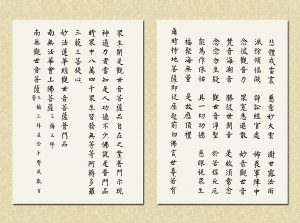 悲體戒雷震 慈意妙大雲 澍甘露法雨
滅除煩惱焰 諍訟經官處 怖畏軍陣中
念彼觀音力 眾怨悉退散 妙音觀世音
梵音海潮音 勝彼世間音 是故須常念
念念勿生疑 觀世音淨聖 於苦惱死厄
能為作依怙 具一切功德 慈眼視眾生
福聚海無量 是故應頂禮
爾時持地菩薩即從座起前白佛言世尊若有
眾生聞是觀世音菩薩品自在之業普門示現
神通力者當知是人功德不少佛說是普門品
時眾中八萬四千眾生皆發無等等阿耨多羅
三藐三菩提心
妙法蓮華經觀世音菩薩普門品
南無法華會上佛菩薩 三稱三拜
南無觀世音菩薩